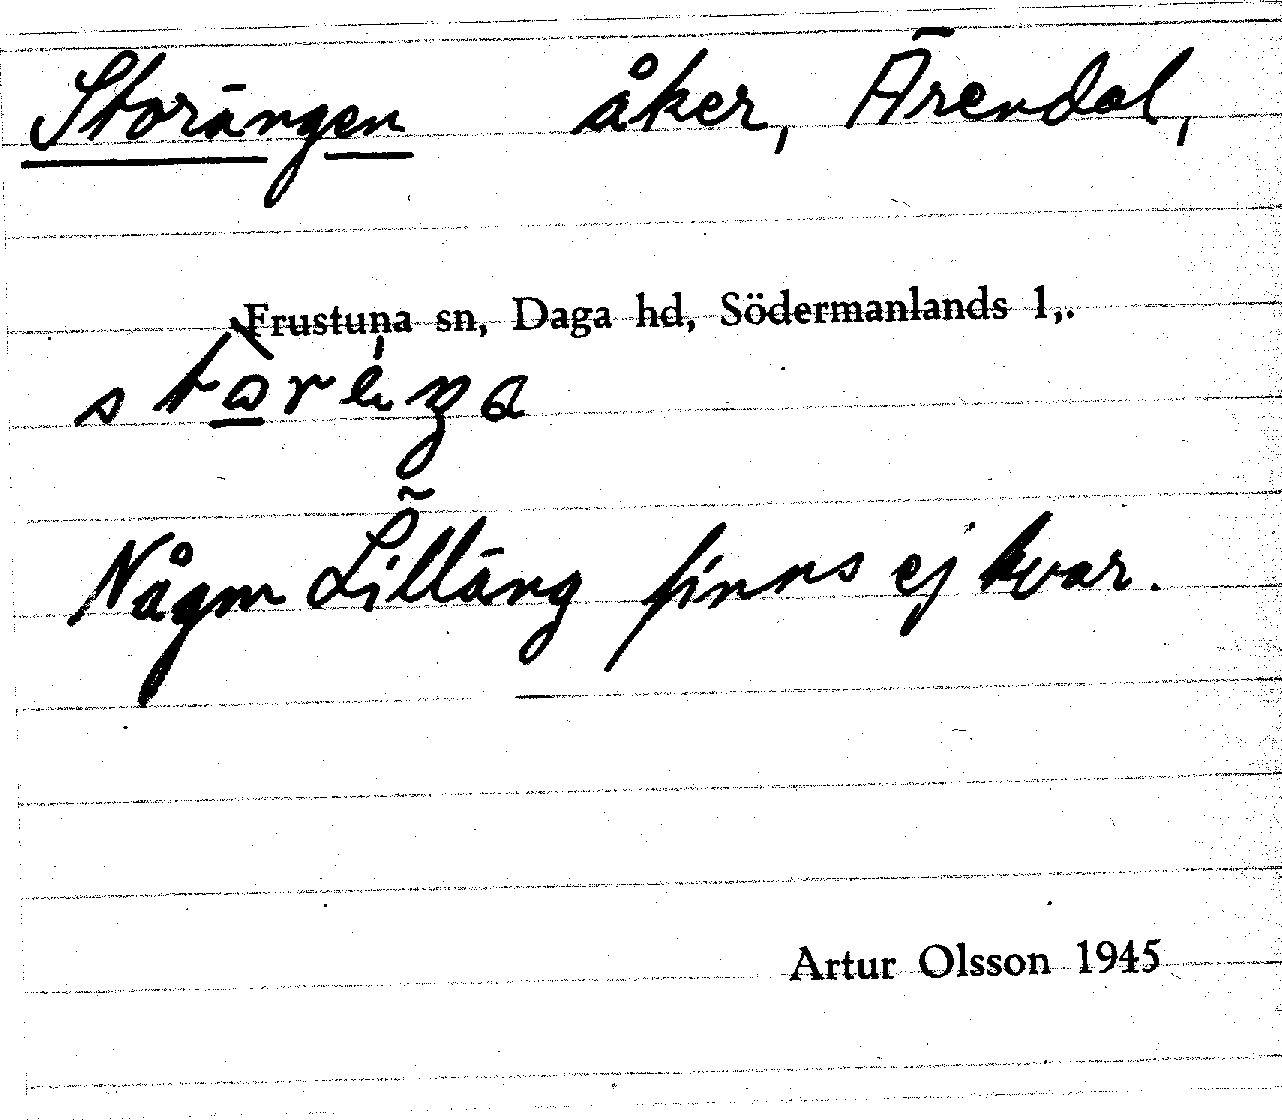 Storängen åker, Ärendal,
Frustuna sn, Daga hd, Södermanlands l,.
Någon Lilläng finns ej kvar.
Artur Olsson 1945